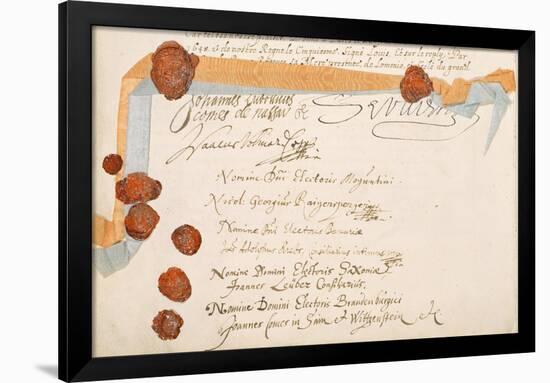 1648. & de nostre Regne le Cinquiesme. Signé Louis, Et sur le reply, Par
Johannes Ludovicus
comes de Nassau &
Servien
Isaacus Volmar
Nomine Dni Electoris Moguntini.
Nicol. Georgius Raigersperger
Nomine Dni Electoris Bavariæ
Joh: Adolphus Krebs, Consiliarius intimus
Nomine Domini Electoris Saxoniæ
Joannes Leuber Consiliarius.
Nomine Domini Electoris Brandenburgici
Joannes Comes in Sain et Wittgenstein